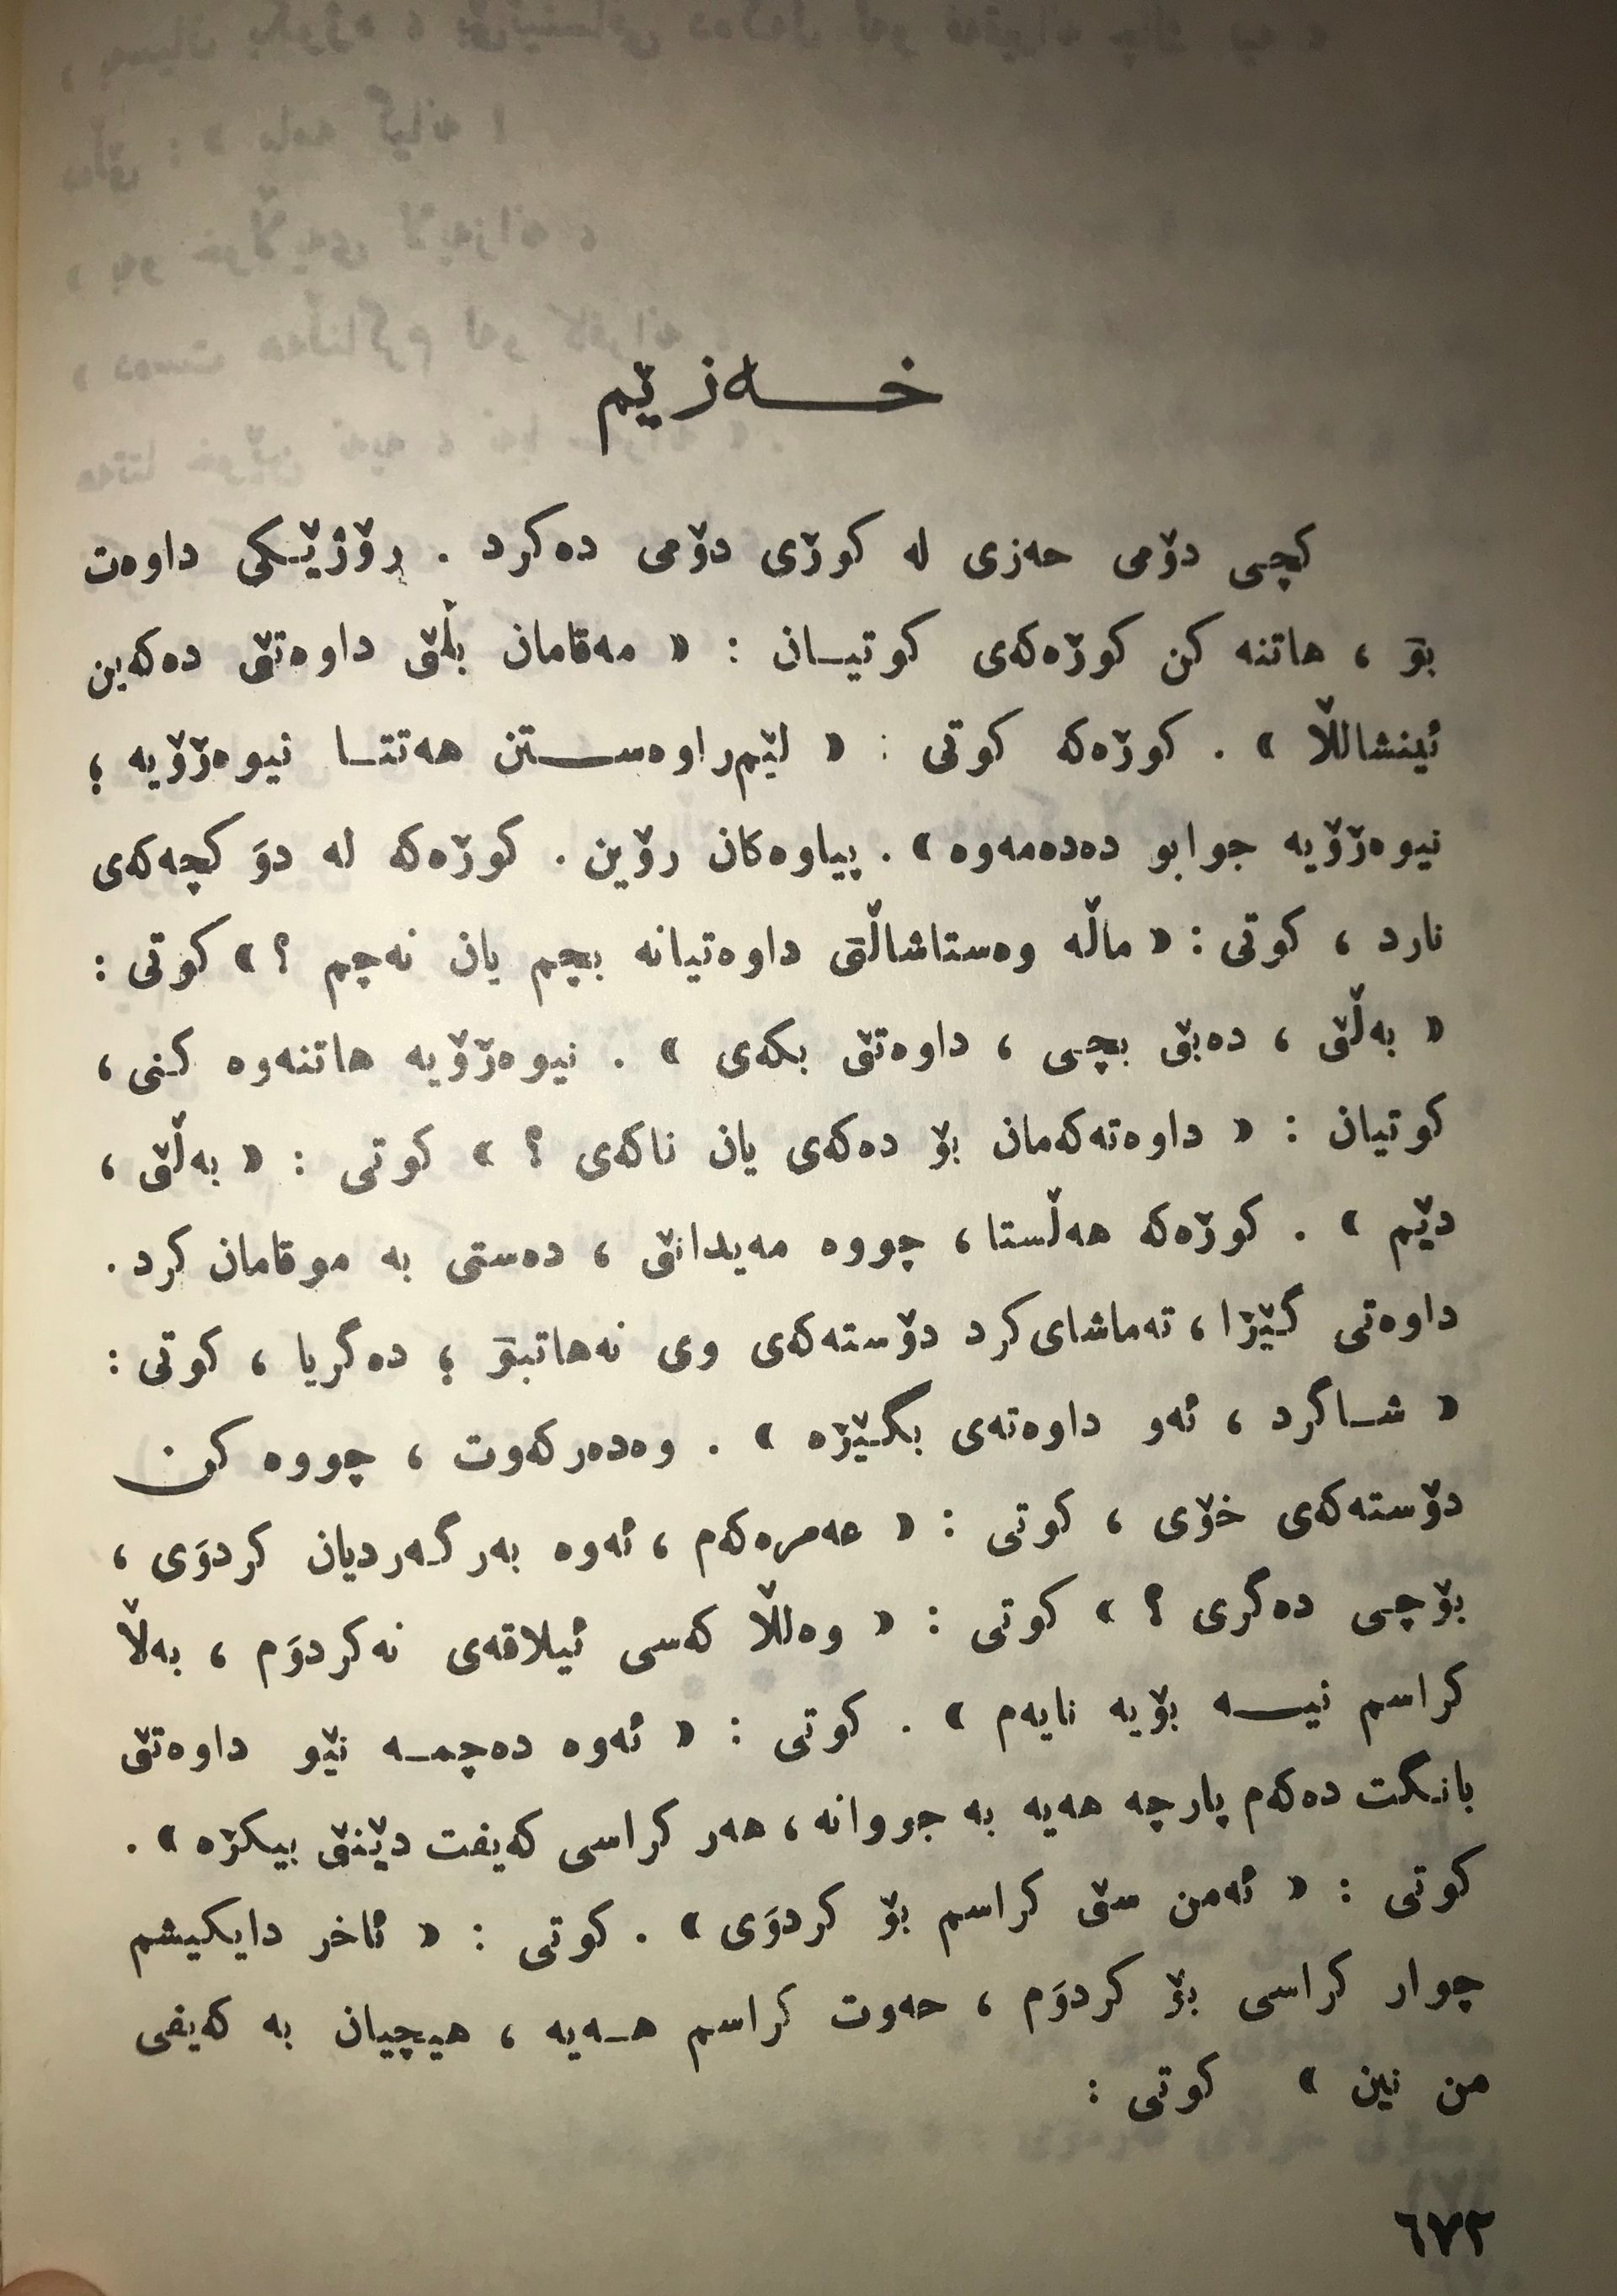 خـــەزێم
کچی دۆمی حەزی لە کوڕی دۆمی دەکرد . رۆژێـکی داوەت
بۆ ، هاتنە کن کوڕەکەی کوتیـان : « مەقامان بڵێ داوەتێ دەکەین
ئینشاللڵا » . کوڕەکە کوتی : « لێم‌راوەســتن هەتتـا نیوەڕۆیە ؛
نیوەڕۆیە جوابو دەدەمەوە » . پیاوەکان رۆین . کوڕەکە لە دوَ کچەکەی
نارد ، کوتی : « ماڵە وەستاشاڵێ داوەتیانە بچم یان نەچم ؟ » کوتی :
« بەڵێ ، دەبێ بچی ، داوەتێ بکەی » . نیوەڕۆیە هاتنەوە کنی ،
کوتیان : « داوەتەکەمان بۆ دەکەی یان ناکەی ؟ » کوتی : « بەڵێ ،
دێم » . کوڕەکە هەڵستا ، چووە مەیدانێ ، دەستی بە موقامان کرد .
داوەتی گێڕا ، تەماشای‌کرد دۆستەکەی وی نەهاتبۆ ؛ دەگریا ، کوتی :
« شـاگرد ، ئەو داوەتەی بگـێڕە » . وەدەرکەوت ، چووە کن
دۆستەکەی خۆی ، کوتی : « عەمرەکەم ، ئەوە بەرگەردیان کردوَی ،
بۆچی دەگری ؟ » کوتی : « وەللڵا کەسی ئیلاقەی نەکردوَم ، بەڵا
کراسم نیــە بۆیە نایەم » . کوتی : « ئەوە دەچمـە نێو داوەتێ
بانگت دەکەم پارچە هەیە بە جووانە ، هەر کراسی کەیفت دێنێ بیکڕە » .
کوتی : « ئەمن سێ کراسم بۆ کردوَی » . کوتی : « ئاخر دایکیشم
چوار کراسی بۆ کردوَم ، حەوت کراسم هـەیە ، هیچیان بە کەیفی
من نین » کوتی :
٦٧٢